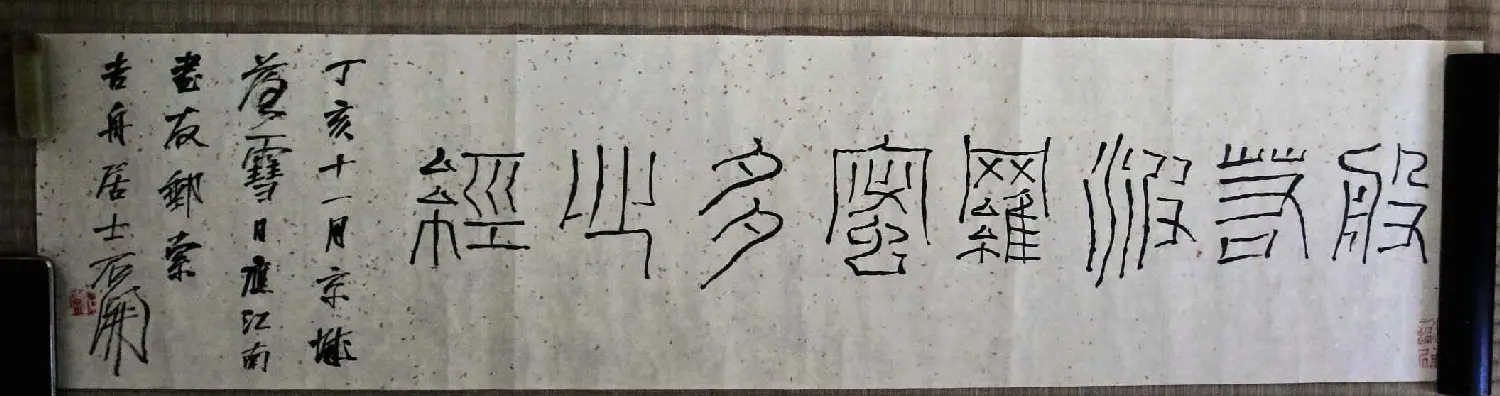 般若波羅蜜多心經
丁亥十一月京城
雪日應江南
書友郵索
吉舟居士石開